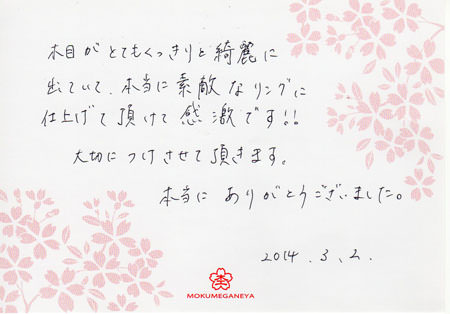 木目がとてもくっきりと綺麗に
出ていて、本当に素敵なリングに
仕上げて頂けて感激です!!
大切につけさせて頂きます。
本当にありがとうございました。
2014.3.2.
MOKUMEGANEYA